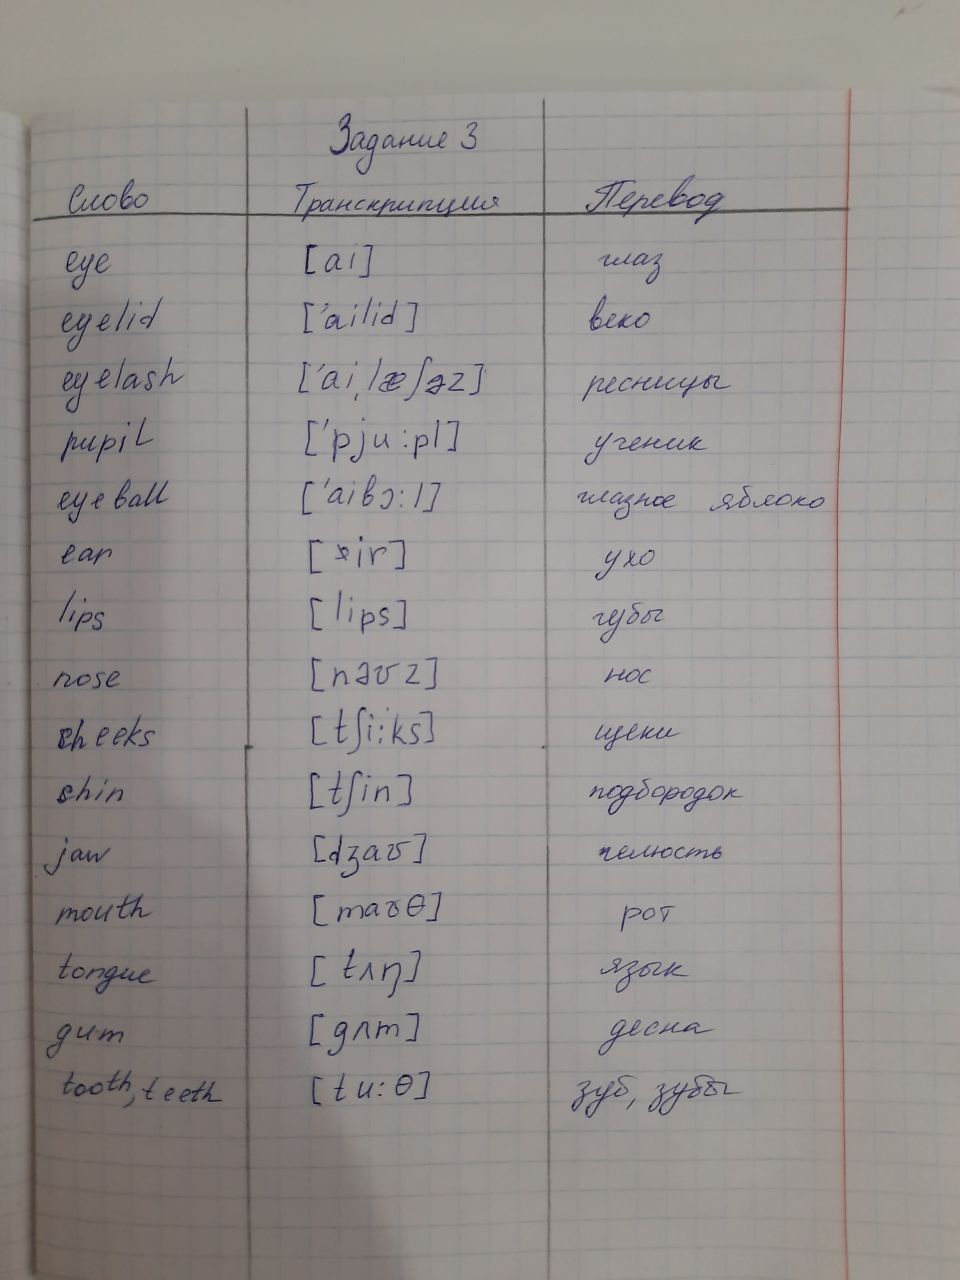 Задание 3
Слово Транскрипция Перевод
eye [ai] глаз
eyelid ['ailid] веко
eyelash ['ai,læʃəz] ресницы
pupil ['pju:pl] ученик
eyeball ['aibɔ:l] глазное яблоко
ear [ir] ухо
lips [lips] губы
nose [nəʊz] нос
cheeks [tʃi:ks] щеки
shin [tʃin] подбородок
jaw [dʒaʊ] челюсть
mouth [maʊθ] рот
tongue [tʌŋ] язык
gum [gʌm] десна
tooth, teeth [tu:θ] зуб, зубы